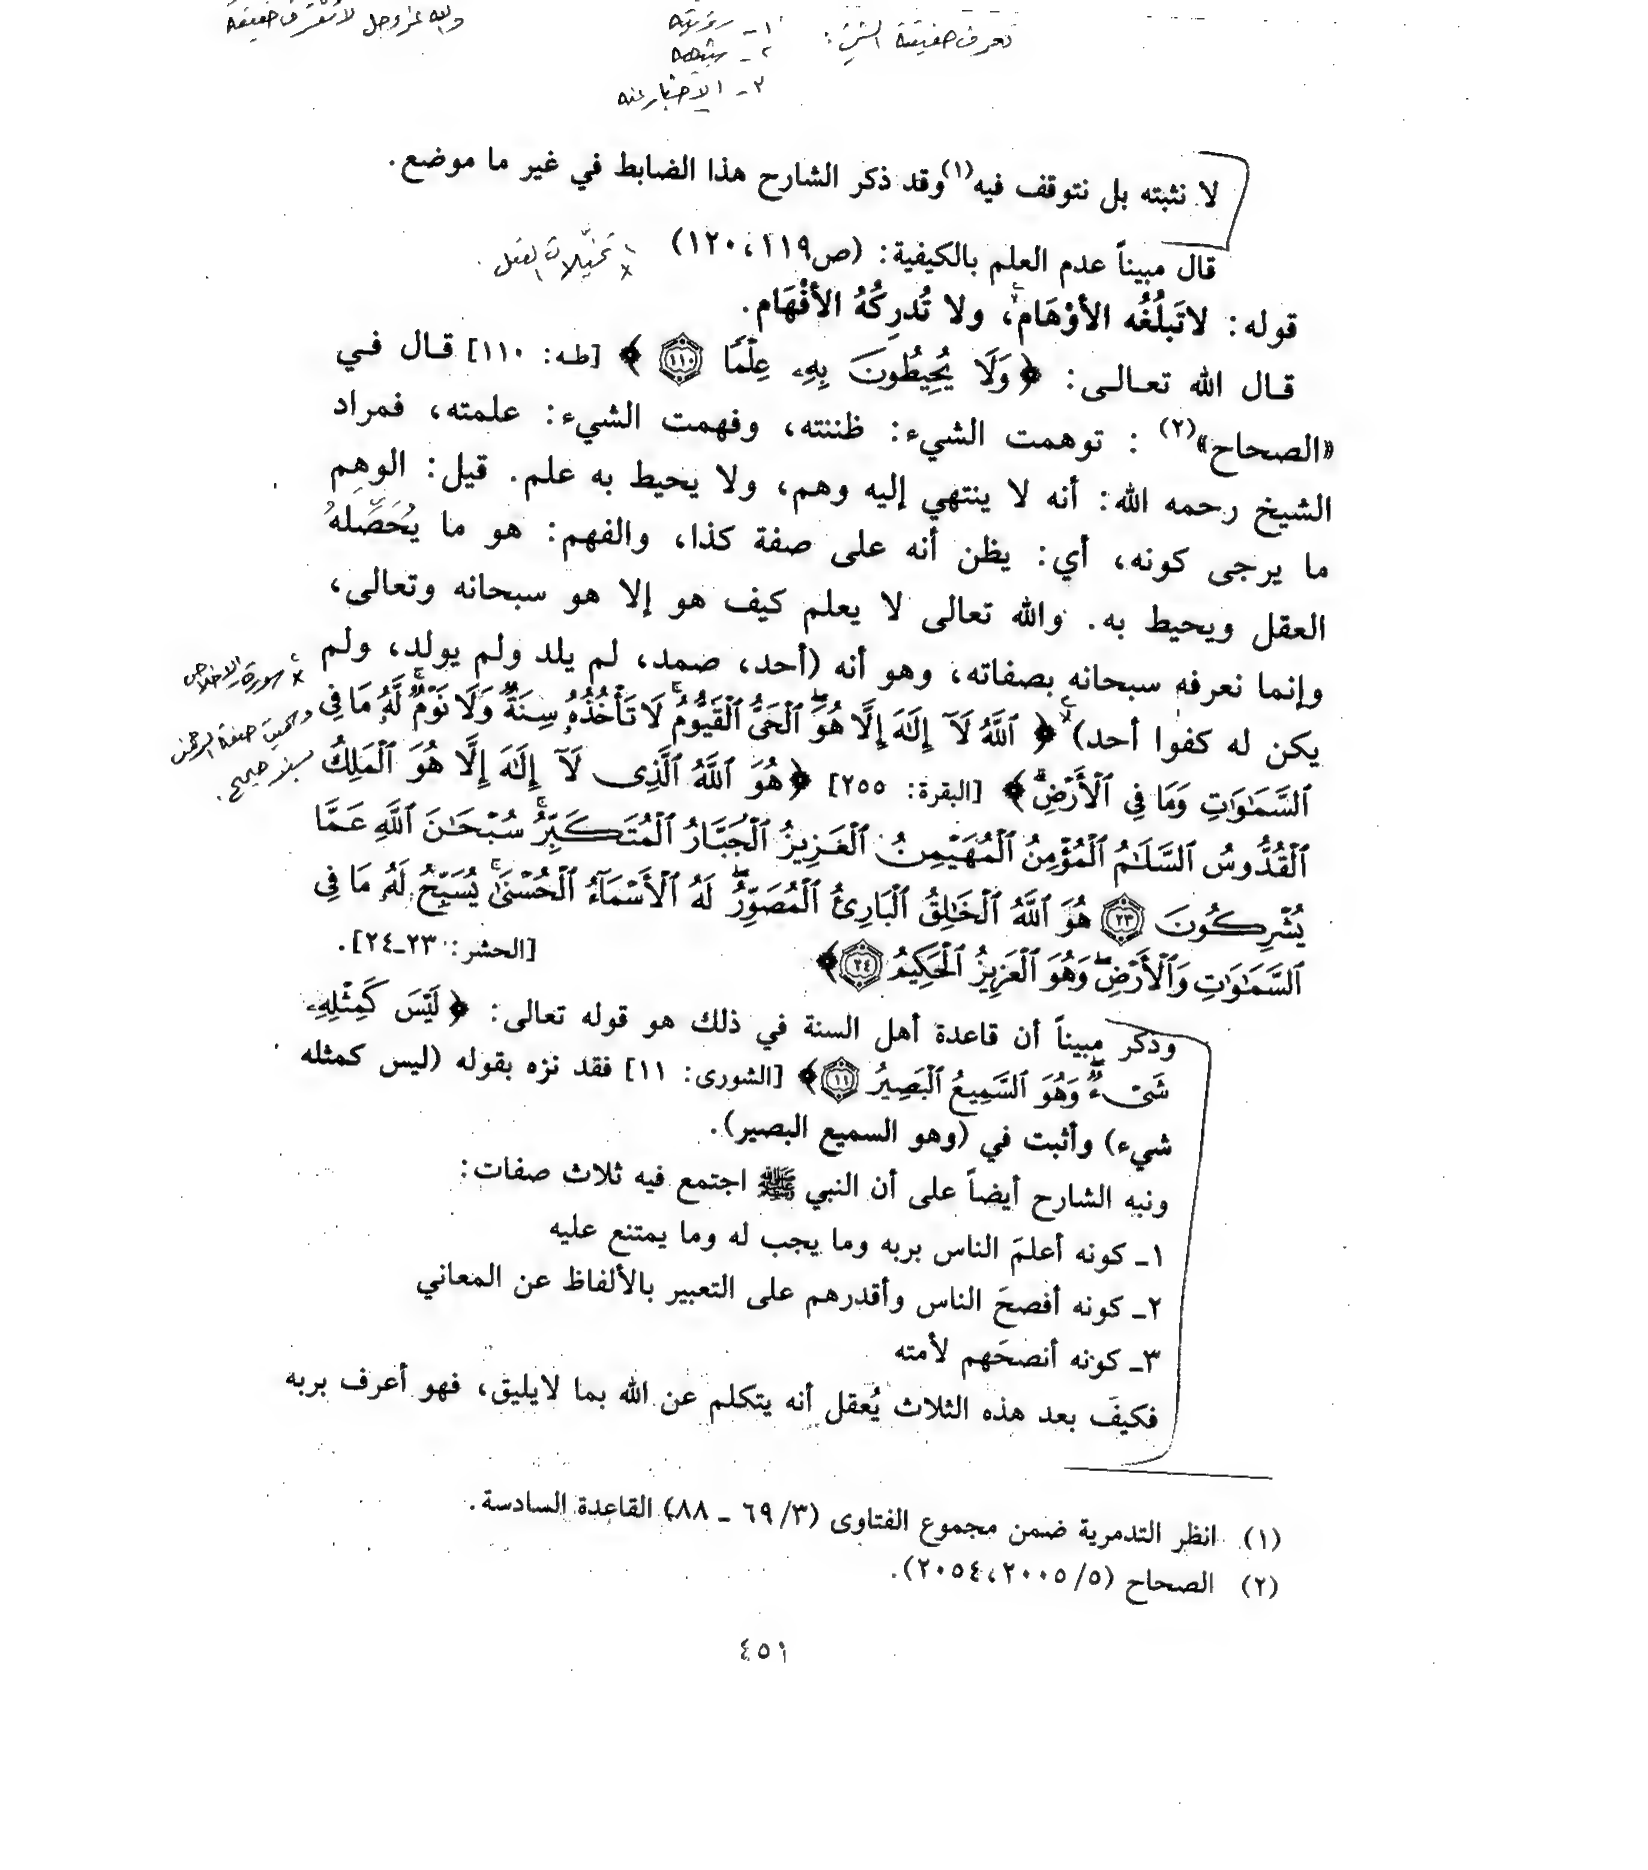 تعرف حقيقة الشيء: ١- رؤيته
والله عز وجل لا تُعرف حقيقته
٢- شبيهه
٣- الإخبار عنه
لا نثبته بل نتوقف فيه(١) وقد ذكر الشارح هذا الضابط في غير ما موضع.
قال مبيناً عدم العلم بالكيفية: (ص١١٩، ١٢٠)
* تخيّلات العقل.
قوله: لاتَبلُغُه الأوْهَام، ولا تُدرِكُهُ الأفْهَام.
قـال الله تعـالـى: ﴿وَلَا يُحِيطُونَ بِهِۦ عِلْمًا ١١٠﴾ [طه: ١١٠] قـال فـي
«الصحاح»(٢) : توهمت الشيء: ظننته، وفهمت الشيء: علمته، فمراد
الشيخ رحمه الله: أنه لا ينتهي إليه وهم، ولا يحيط به علم. قيل: الوهم
ما يرجى كونه، أي: يظن أنه على صفة كذا، والفهم: هو ما يُحَصِّلهُ
العقل ويحيط به. والله تعالى لا يعلم كيف هو إلا هو سبحانه وتعالى،
وإنما نعرفه سبحانه بصفاته، وهو أنه (أحد، صمد، لم يلد ولم يولد، ولم
* سورة الإخلاص
يكن له كفوا أحد) ﴿ٱللَّهُ لَآ إِلَٰهَ إِلَّا هُوَ ٱلْحَىُّ ٱلْقَيُّومُ ۚ لَا تَأْخُذُهُۥ سِنَةٌ وَلَا نَوْمٌ ۚ لَّهُۥ مَا فِى
صفة الرحمن
ٱلسَّمَٰوَٰتِ وَمَا فِى ٱلْأَرْضِ ۗ﴾ [البقرة: ٢٥٥] ﴿هُوَ ٱللَّهُ ٱلَّذِى لَآ إِلَٰهَ إِلَّا هُوَ ٱلْمَلِكُ
صحيح.
ٱلْقُدُّوسُ ٱلسَّلَٰمُ ٱلْمُؤْمِنُ ٱلْمُهَيْمِنُ ٱلْعَزِيزُ ٱلْجَبَّارُ ٱلْمُتَكَبِّرُ ۚ سُبْحَٰنَ ٱللَّهِ عَمَّا
يُشْرِكُونَ ٢٣ هُوَ ٱللَّهُ ٱلْخَٰلِقُ ٱلْبَارِئُ ٱلْمُصَوِّرُ ۖ لَهُ ٱلْأَسْمَآءُ ٱلْحُسْنَىٰ ۚ يُسَبِّحُ لَهُۥ مَا فِى
ٱلسَّمَٰوَٰتِ وَٱلْأَرْضِ ۖ وَهُوَ ٱلْعَزِيزُ ٱلْحَكِيمُ ٢٤﴾ [الحشر: ٢٣-٢٤].
وذكر مبيناً أن قاعدة أهل السنة في ذلك هو قوله تعالى: ﴿لَيْسَ كَمِثْلِهِۦ
شَىْءٌ ۖ وَهُوَ ٱلسَّمِيعُ ٱلْبَصِيرُ ١١﴾ [الشورى: ١١] فقد نزه بقوله (ليس كمثله
شيء) وأثبت في (وهو السميع البصير).
ونبه الشارح أيضاً على أن النبي ﷺ اجتمع فيه ثلاث صفات:
١ـ كونه أعلمَ الناس بربه وما يجب له وما يمتنع عليه
٢ـ كونه أفصحَ الناس وأقدرهم على التعبير بالألفاظ عن المعاني
٣ـ كونه أنصحَهم لأمته
فكيفَ بعد هذه الثلاث يُعقل أنه يتكلم عن الله بما لايليق، فهو أعرف بربه
(١) انظر التدمرية ضمن مجموع الفتاوى (٦٩/٣ ـ ٨٨) القاعدة السادسة.
(٢) الصحاح (٢٠٠٥/٥، ٢٠٥٤).
٤٥١